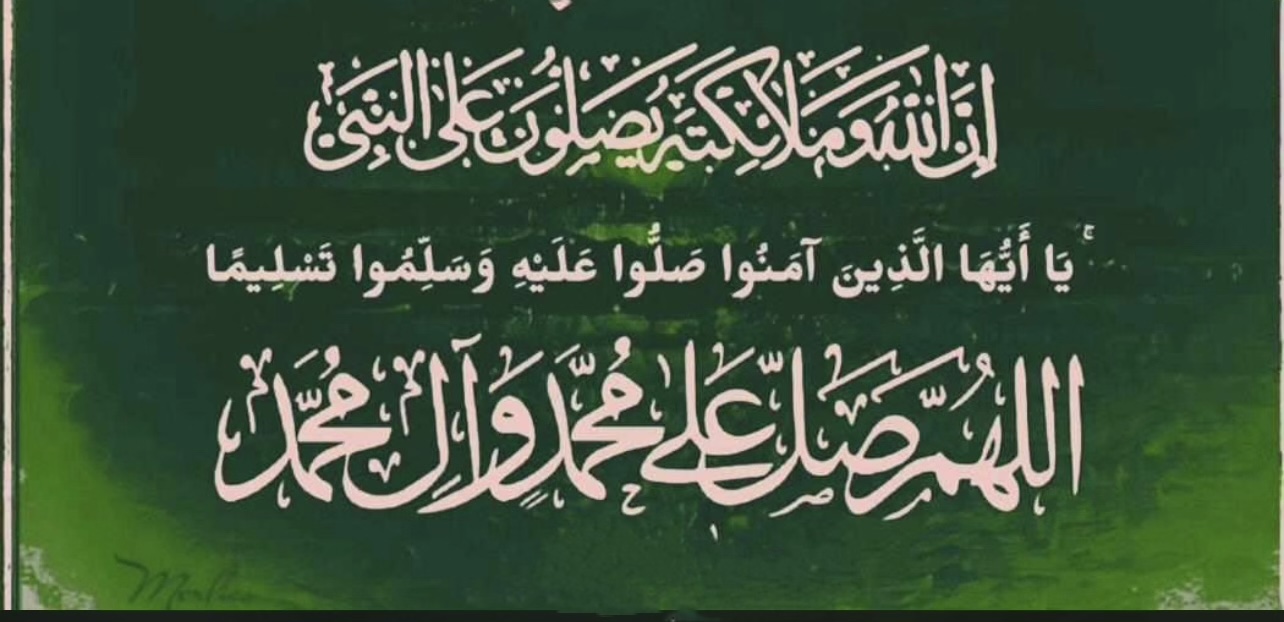 إِنَّ اللَّهَ وَمَلَائِكَتَهُ يُصَلُّونَ عَلَى النَّبِيِّ
يَا أَيُّهَا الَّذِينَ آمَنُوا صَلُّوا عَلَيْهِ وَسَلِّمُوا تَسْلِيمًا
اللهُمَّ صَلِّ عَلَى مُحَمَّدٍ وَآلِ مُحَمَّد